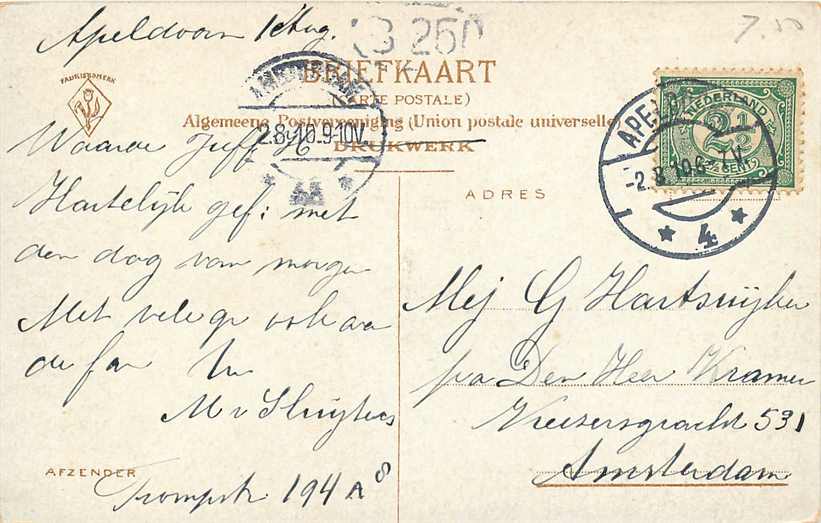 Apeldoorn 1 Aug.
BRIEFKAART
(CARTE POSTALE)
Algemeene Postvereeniging (Union postale universelle)
DRUKWERK
FABRIEKSMERK
AMSTERDAM
2.8.10.9-10V
NEDERLAND
2½
CENT
APELDOORN
-2.8.10 6-7V
1 * 4 *
7.50
Waarde Juff. H
Hartelijk gef: met
den dag van morgen
Met vele gr ook aan
de fam
M v Sluyters
AFZENDER
Trompstr 194 A 8
ADRES
Mej G Hartsuijker
p/a Den Heer Kramer
Keizersgracht 531
Amsterdam